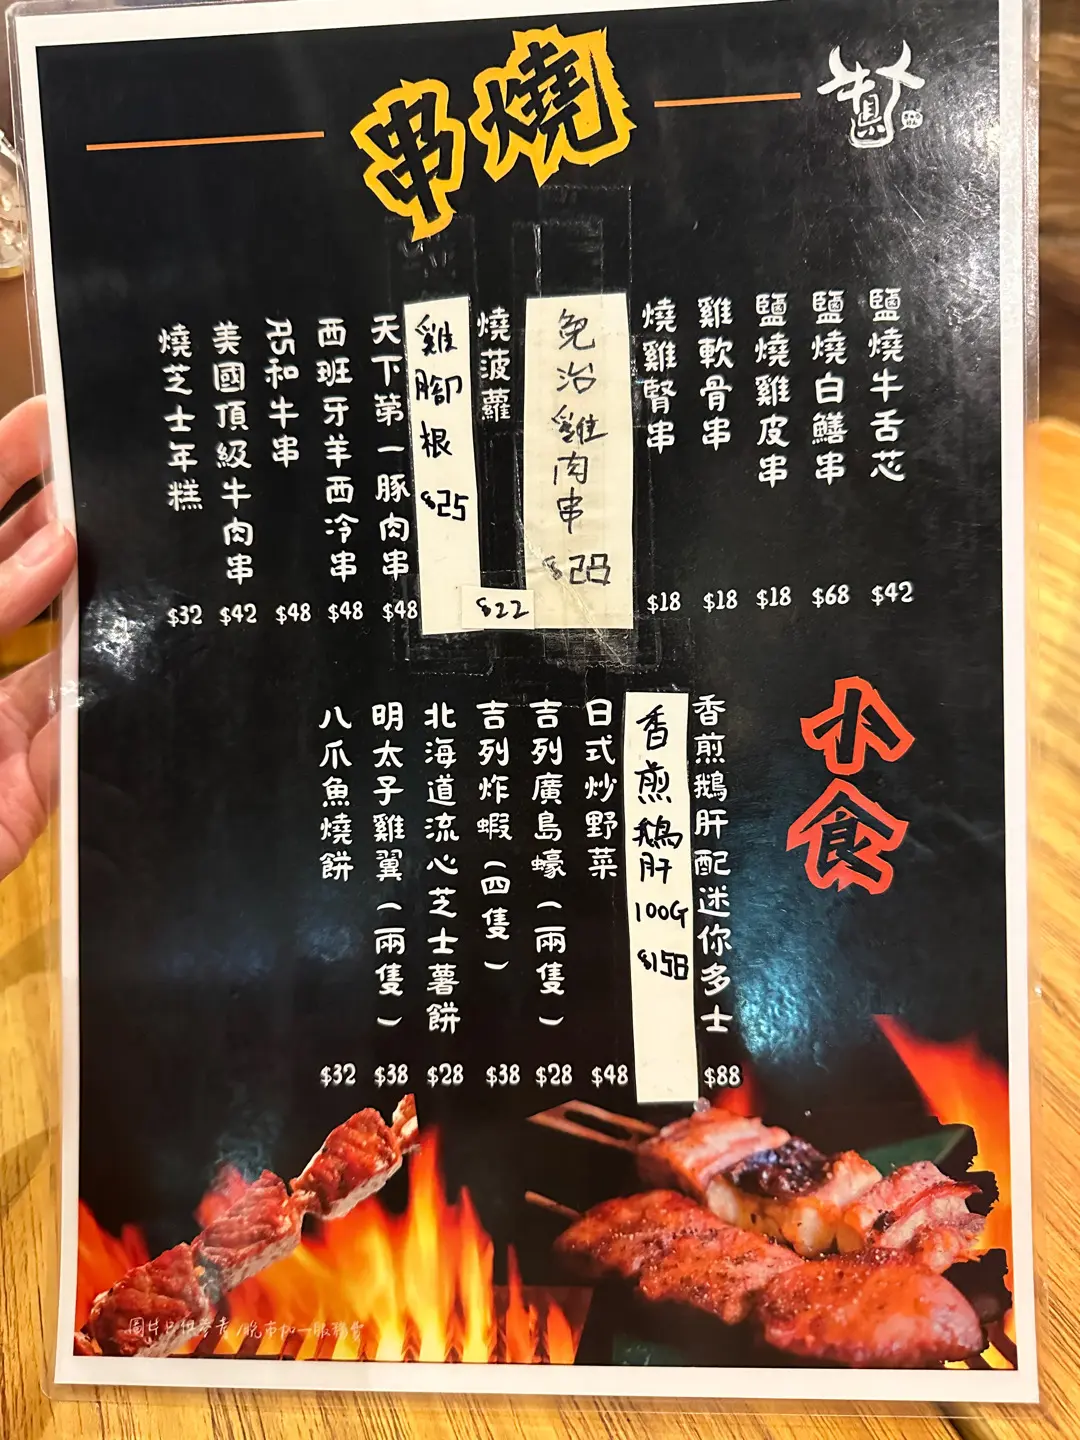 串燒
鹽燒牛舌芯 $42
鹽燒白鱔串 $68
鹽燒雞皮串 $18
雞軟骨串 $18
燒雞腎串 $18
免治雞肉串 $28
燒菠蘿 $22
雞腳根 $25
天下第一豚肉串 $48
西班牙羊西冷串 $48
R5和牛串 $48
美國頂級牛肉串 $42
燒芝士年糕 $32
小食
香煎鵝肝配迷你多士 $88
香煎鵝肝 100G $158
日式炒野菜 $48
吉列廣島蠔(兩隻) $28
吉列炸蝦(四隻) $38
北海道流心芝士薯餅 $28
明太子雞翼(兩隻) $38
八爪魚燒餅 $32
圖片只供參考 /晚市加一服務費